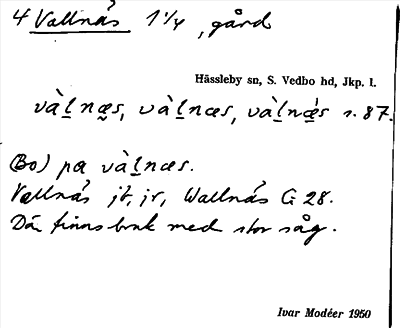 4 Vallnäs 1 1/4, gård
Hässleby sn, S. Vedbo hd, Jkp. l.
và̱lnæs, và̱lnæs, và̱lnǽ̱s s. 87.
(Bo) pα và̱lnæs.
Vallnäs jb, jr, Wallnäs G 28.
Där finns bruk med stor såg.
Ivar Modéer 1950